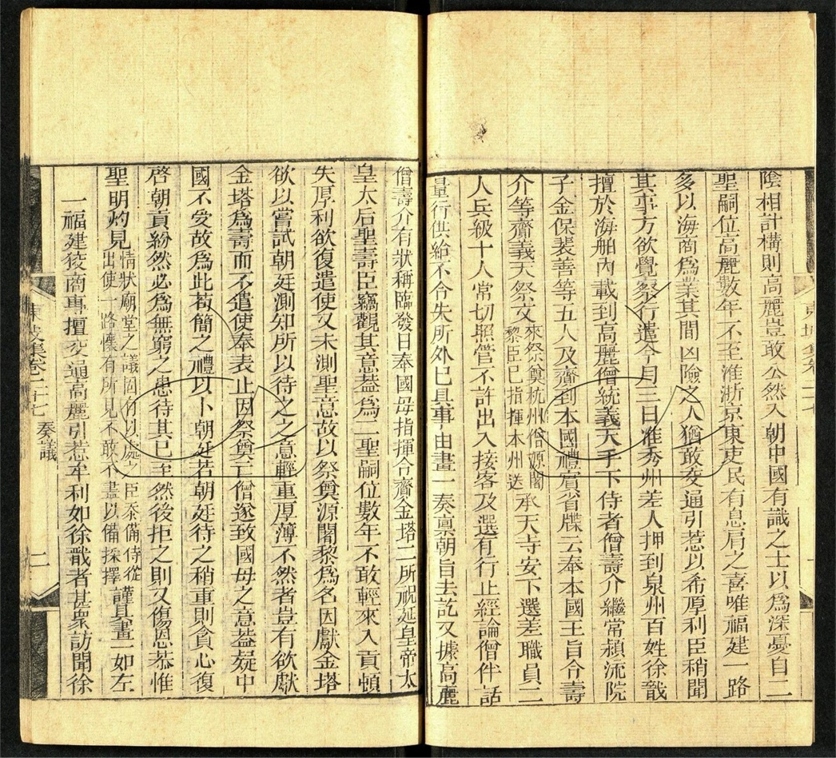 陰相計構則高麗豈敢公然入朝中國有識之士以爲深憂自二
聖嗣位高麗數年不至淮浙京東吏民有息肩之喜唯福建一路
多以海商爲業其間凶險之人猶敢交通引惹以希厚利臣稍聞
其事方欲覺察行遣今月三日准秀州差人押到泉州百姓徐戩
擅於海舶內載到高麗僧統義天手下侍者僧壽介繼常潁流院
子金保裴善等五人及齎到本國禮賓省牒云奉本國王旨令壽
介等齎義天祭文來祭奠杭州僧源闍黎臣已指揮本州送承天寺安下選差職員二
人兵級十人常切照管不許出入接客及選有行止經論僧伴話
量行供給不令失所外巳具事由畫一奏禀朝旨去訖又據高麗
僧壽介有狀稱臨發日奉國母指揮令齎金塔二所祝延皇帝太
皇太后聖壽臣竊觀其意葢爲二聖嗣位數年不敢輕來入貢頓
失厚利欲復遣使又未測聖意故以祭奠源闍黎爲名因獻金塔
欲以嘗試朝廷測知所以待之之意輕重厚薄不然者豈有欲獻
金塔爲壽而不遣使奉表止因祭奠亡僧遂致國母之意葢疑中
國不受故爲此苟簡之禮以卜朝廷若朝廷待之稍重則貪心復
啓朝貢紛然必爲無窮之患待其巳至然後拒之則又傷恩恭惟
聖明灼見情狀廟堂之議固有以處之臣忝備侍從出使一路懷有所見不敢不盡以備採擇謹具畫一如左
一福建狡商專擅交通高麗引惹牟利如徐戩者甚衆訪聞徐
東坡集卷二十七 奏議 二